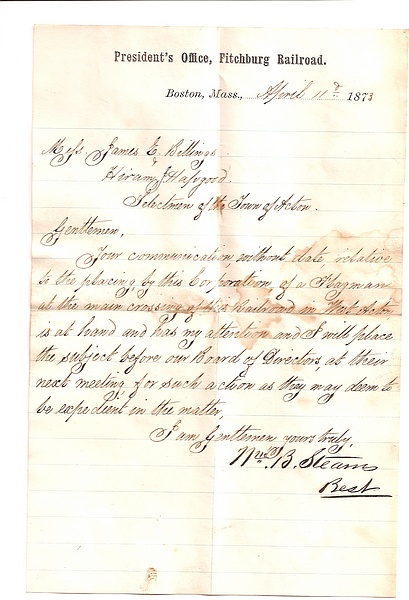 President's Office, Fitchburg Railroad.
Boston, Mass., April 11th 1873
Mess James E Billings
Hiram J Hapgood
Selectmen of the Town of Acton.
Gentlemen,
Your communication without date relative
to the placing by this Corporation of a Flagman
at the main crossing of this Railroad in West Acton
is at hand and has my attention and I will place
the subject before our Board of Directors, at their
next meeting, for such action as they may deem to
be expedient in the matter,
I am Gentlemen yours truly,
Wm. B. Stearns
Prest